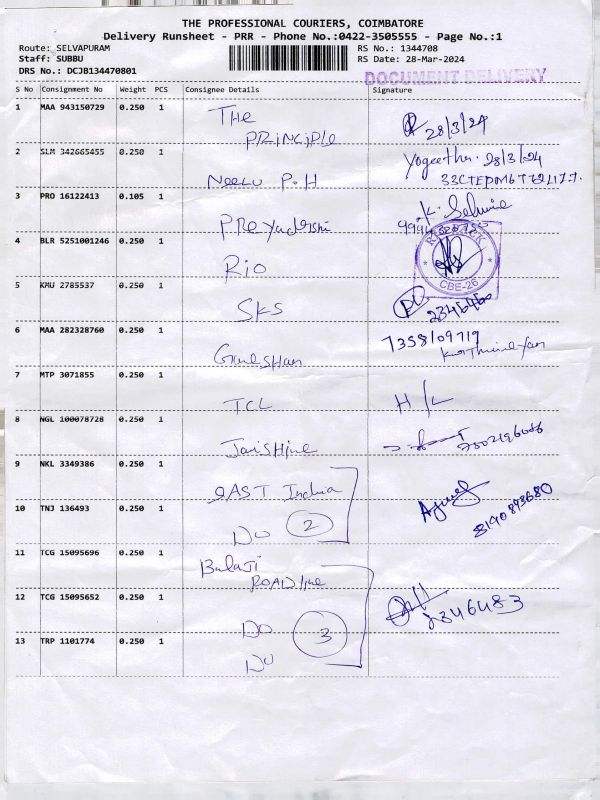 THE PROFESSIONAL COURIERS, COIMBATORE
Delivery Runsheet - PRR - Phone No.:0422-3505555 - Page No.:1
Route: SELVAPURAM
Staff: SUBBU
DRS No.: DCJB134470801
RS No.: 1344708
RS Date: 28-Mar-2024
DOCUMENT DELIVERY
S No Consignment No Weight PCS Consignee Details Signature
1 MAA 943150729 0.250 1 The
PRINCIPLE 28/3/24
2 SLM 342665455 0.250 1 Neelu P.H Yogeetha. 28/3/24
3 PRO 16122413 0.105 1 K. Selvie
4 BLR 5251001246 0.250 1 Rio
CBE-26
5 KMU 2785537 0.250 1 SKS
6 MAA 282328760 0.250 1 Ganeshan 7358109719
7 MTP 3071855 0.250 1 TCL H/L
8 NGL 100078728 0.250 1 Jaishine
9 NKL 3349386 0.250 1 EAST India
10 TNJ 136493 0.250 1 DO 2 8190893680
11 TCG 15095696 0.250 1 Balaji
ROADline
12 TCG 15095652 0.250 1 DO 3 2346483
13 TRP 1101774 0.250 1 DO